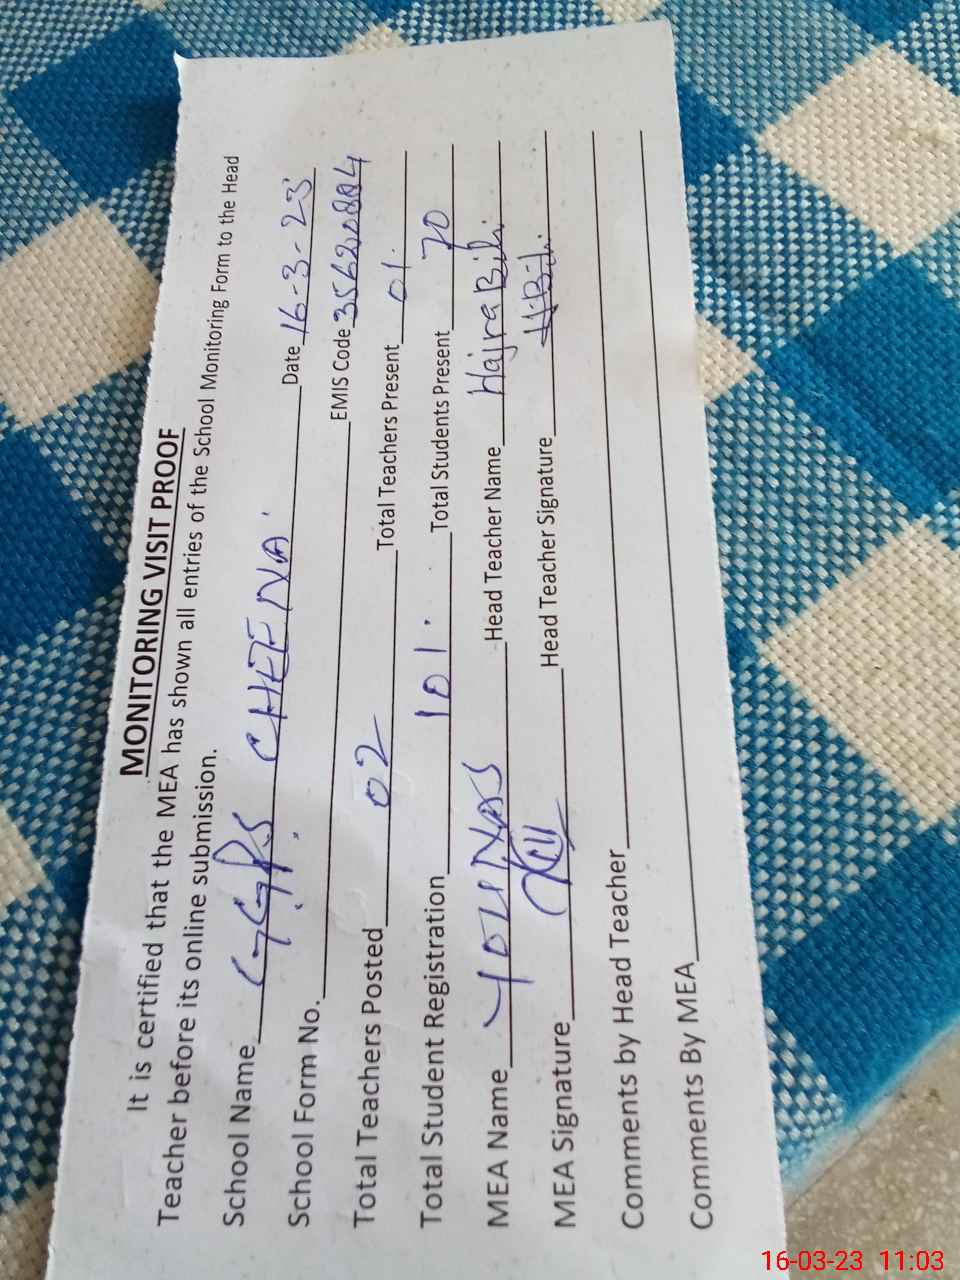 MONITORING VISIT PROOF
It is certified that the MEA has shown all entries of the School Monitoring Form to the Head
Teacher before its online submission.
School Name G.G.P.S CHEENA Date 16-3-23
School Form No. EMIS Code
Total Teachers Posted 02 Total Teachers Present 01
Total Student Registration 101 Total Students Present 70
MEA Name YOUNAS Head Teacher Name Hajra Bibi
MEA Signature Head Teacher Signature H.Bibi
Comments by Head Teacher
Comments By MEA
16-03-23 11:03